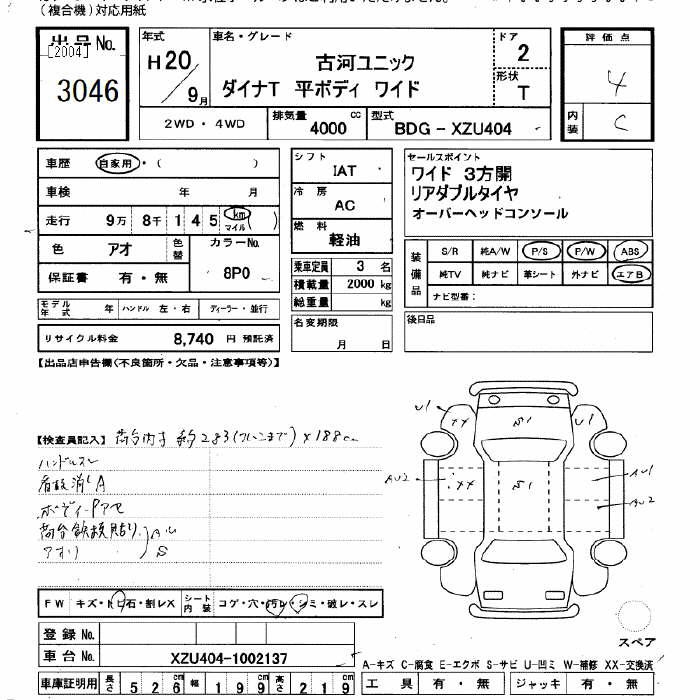 (複合機)対応用紙
出品No.
[2004]
3046
年式
H20
9月
車名・グレード
古河ユニック
ダイナT 平ボディ ワイド
ドア
2
形状
T
2WD・4WD
排気量
4000 cc
型式
BDG-XZU404
評価点
4
内装
C
車歴 自家用・( )
車検 年 月
走行 9万 8千 145 (km マイル)
色 アオ 色替
カラーNo.
8P0
保証書 有・無
モデル年式 年 ハンドル 左・右 ディーラー・並行
リサイクル料金 8,740 円 預託済
シフト
IAT
冷房
AC
燃料
軽油
乗車定員 3 名
積載量 2000 kg
総重量 kg
名変期限
月 日
セールスポイント
ワイド 3方開
リアダブルタイヤ
オーバーヘッドコンソール
装備品
S/R 純A/W P/S P/W ABS
純TV 純ナビ 革シート 外ナビ エアB
ナビ型番:
後日品
【出品店申告欄(不良箇所・欠品・注意事項等)】
【検査員記入】 荷台内寸 約283 ×188cm
ハンドルスレ
ボディー
アオリ
U1
XX
S1
U1
AU2
XX
S1
AU1
AU2
FW キズ・トビ石・割レX
シート内装 コゲ・穴・汚レ・シミ・破レ・スレ
登録No.
車台No. XZU404-1002137
車庫証明用 長さ 526cm 幅 199cm 高さ 219cm
スペア
A-キズ C-腐食 E-エクボ S-サビ U-凹ミ W-補修 XX-交換済
工具 有・無 ジャッキ 有・無